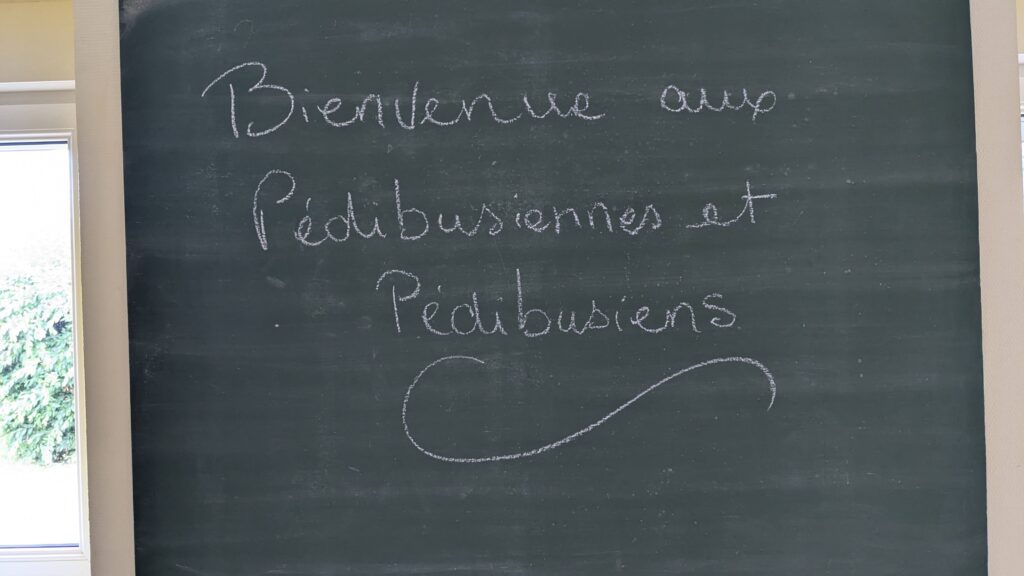 Bienvenue aux
Pédibusiennes et
Pédibusiens